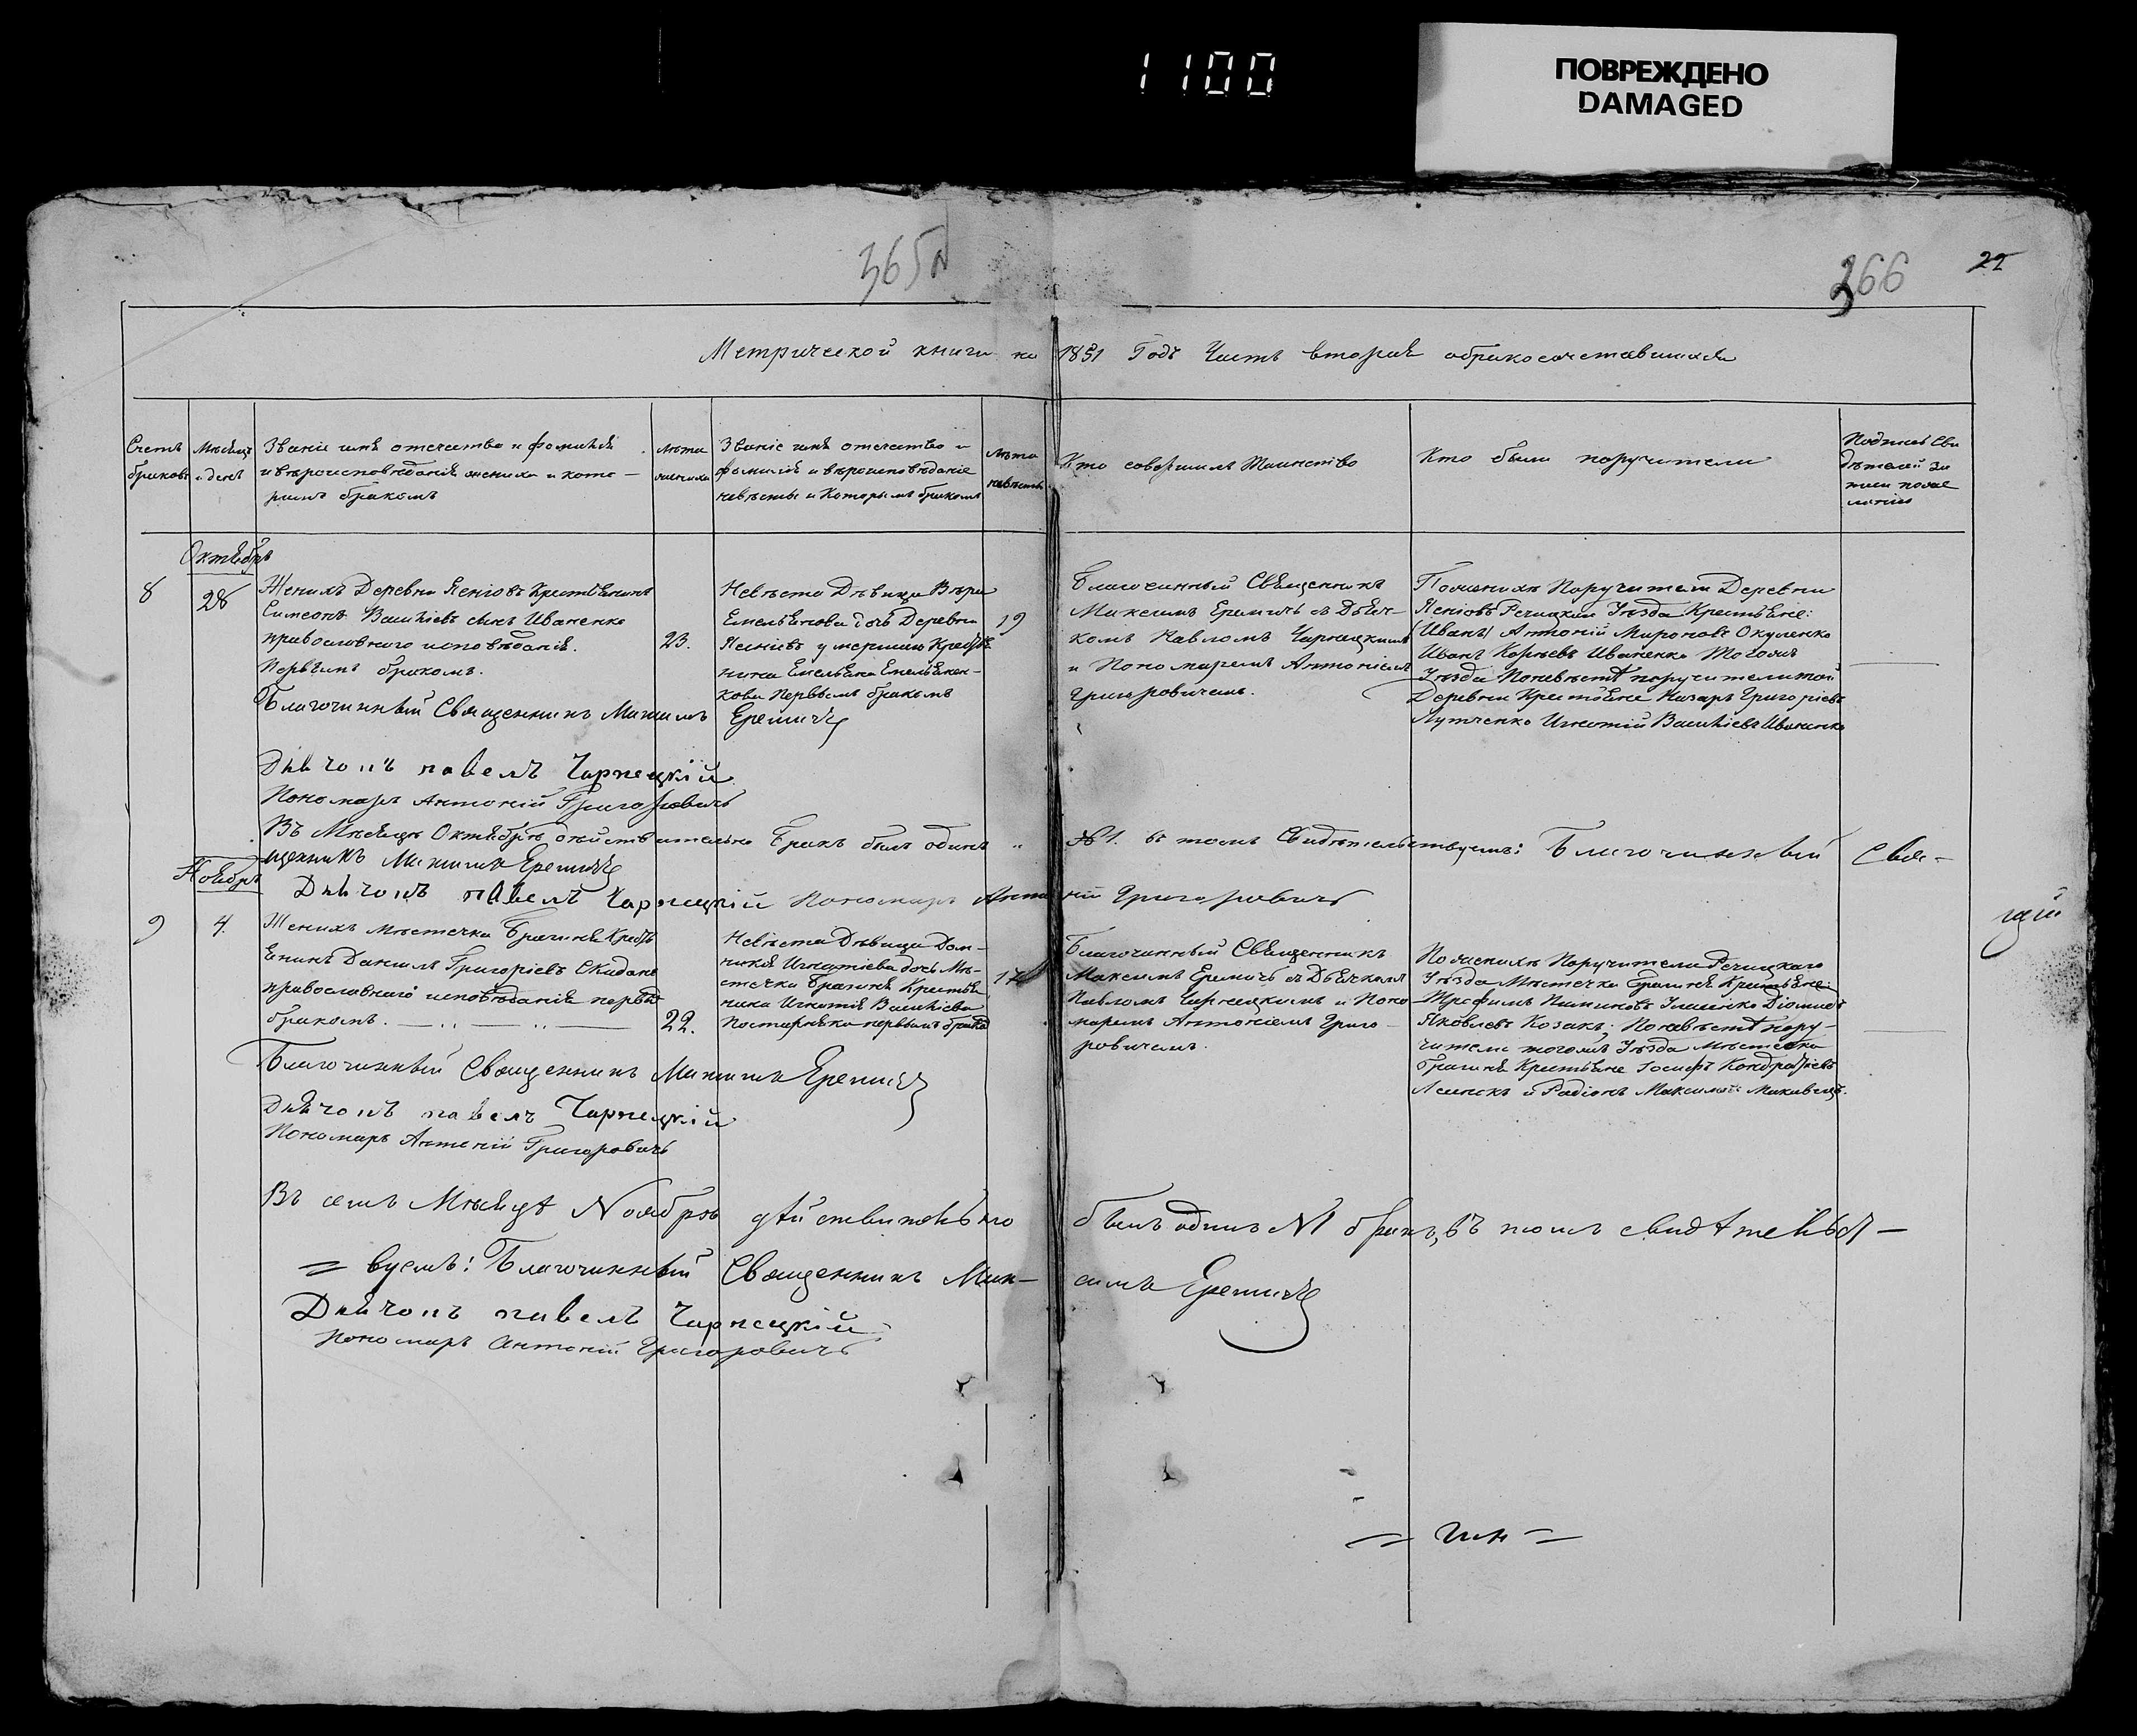 1100
ПОВРЕЖДЕНО
DAMAGED
365
366
22
Метрической книги на 1851 Годъ Часть вторая о бракосочетавшихся
Счетъ браковъ
Мѣсяцъ и день
Званіе имя отечество и фамилія
и вѣроисповѣданія жениха и кото-
рымъ бракомъ
Лѣта жениха
Званіе имя отечество и
фамилія и вѣроисповѣданіе
невѣсты и Которымъ бракомъ
Лѣта невѣсты
Кто совершилъ Таинство
Кто были поручители
Подпись Сви
дѣтелей за
писи по же
ланію
Октябрь
8
28
Женихъ Деревни Ясіновъ Крестьянинъ
Симеонъ Василіевъ сынъ Иваненко
православного исповѣданія.
Первымъ бракомъ.
23.
Невѣста Дѣвица Вѣра
Емельянова дочь Деревни
Ясіновъ умершаго Кресть
нина Емельяна Емельянен-
кова Первымъ бракомъ
19
Благочинный Священникъ
Максимъ Еремичъ съ Дьяч-
комъ Павломъ Чарнецкимъ
и Пономаремъ Антоніемъ
Григоровичемъ.
По женихѣ Поручители Деревни
Ясіновъ Речицкаго Уѣзда Крестьяне:
(Иванъ) Антоній Мироновъ Окуленко
Иванъ Карнѣевъ Иваненко Тогожъ
Уѣзда По невѣстѣ поручители той
Деревни Крестьяне Назаръ Григоріевъ
Лутченко Игнатій Василіевъ Иваненко
Благочинный Священникъ Максимъ Еремичъ
Дьячокъ павелъ Чарнецкій
Пономарь Антоній Григоровичъ
Въ Мѣсяцѣ Октябрѣ дѣйствительно Бракъ былъ одинъ № 1. въ томъ Свидѣтельствуемъ: Благочинный Свя-
щенникъ Максимъ Еремичъ
Дьячокъ павелъ Чарнецкій Пономарь Антоній Григоровичъ
Ноябрь
9
4.
Женихъ мѣстечка Брагиня Кресть
янинъ Даніилъ Григоріевъ Скиданъ
православнаго исповѣданія первымъ
бракомъ.
22.
Невѣста Дѣвица Дом-
никія Игнатіева дочь Мѣ-
стечка Брагиня Крестья
нина Игнатія Василіева
первымъ бракомъ
17
Благочинный Священникъ
Максимъ Еремичъ съ Дьячкомъ
Павломъ Чарнецкимъ и Поно-
маремъ Антоніемъ Григо-
ровичемъ.
По женихѣ Поручители Речицкаго
Уѣзда Мѣстечка Брагиня Крестьяне:
Трофимъ
Яковлевъ Козакъ; По невѣстѣ пору-
чители тогожъ Уѣзда Мѣстечка
Брагиня Крестьяне Іосифъ Кондратіевъ
и Радіонъ Максимовъ
Благочинный Священникъ Максимъ Еремичъ
Дьячокъ павелъ Чарнецкій
Пономарь Антоній Григоровичъ
Въ семъ Мѣсяцѣ Nоябрѣ дѣйствительно былъ одинъ №1 бракъ, въ томъ свидѣтельст-
= вуемъ: Благочинный Священникъ Мак- симъ Еремичъ
Дьячокъ павелъ Чарнецкій
Пономарь Антоній Григоровичъ